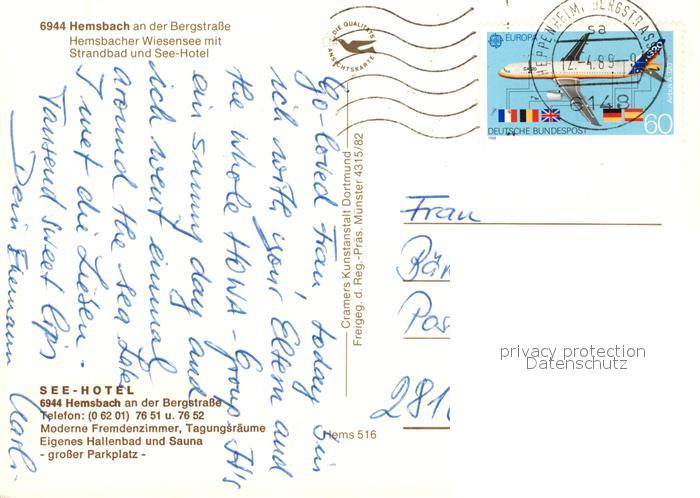 6944 Hemsbach an der Bergstraße
Hemsbacher Wiesensee mit
Strandbad und See-Hotel
DIE QUALITÄTS
ANSICHTSKARTE
EUROPA
HEPPENHEIM, BERGSTRASSE
sa
12.-4.89.-9
6148
A320
DEUTSCHE BUNDESPOST
60
Go-loved Frau, today bin
ich with your Eltern and
the whole HOWA-Group. It's
ein sunny day and
ich went einmal
around the sea. Later
I met die Lieben.
Tausend sweet lips
Dein Ehemann
Cramers Kunstanstalt Dortmund
Freigeg. d. Reg.-Präs. Münster 4315/82
Frau
Bär
Pos
281
privacy protection
Datenschutz
SEE-HOTEL
6944 Hemsbach an der Bergstraße
Telefon: (0 62 01) 76 51 u. 76 52
Moderne Fremdenzimmer, Tagungsräume
Eigenes Hallenbad und Sauna
- großer Parkplatz -
Hems 516